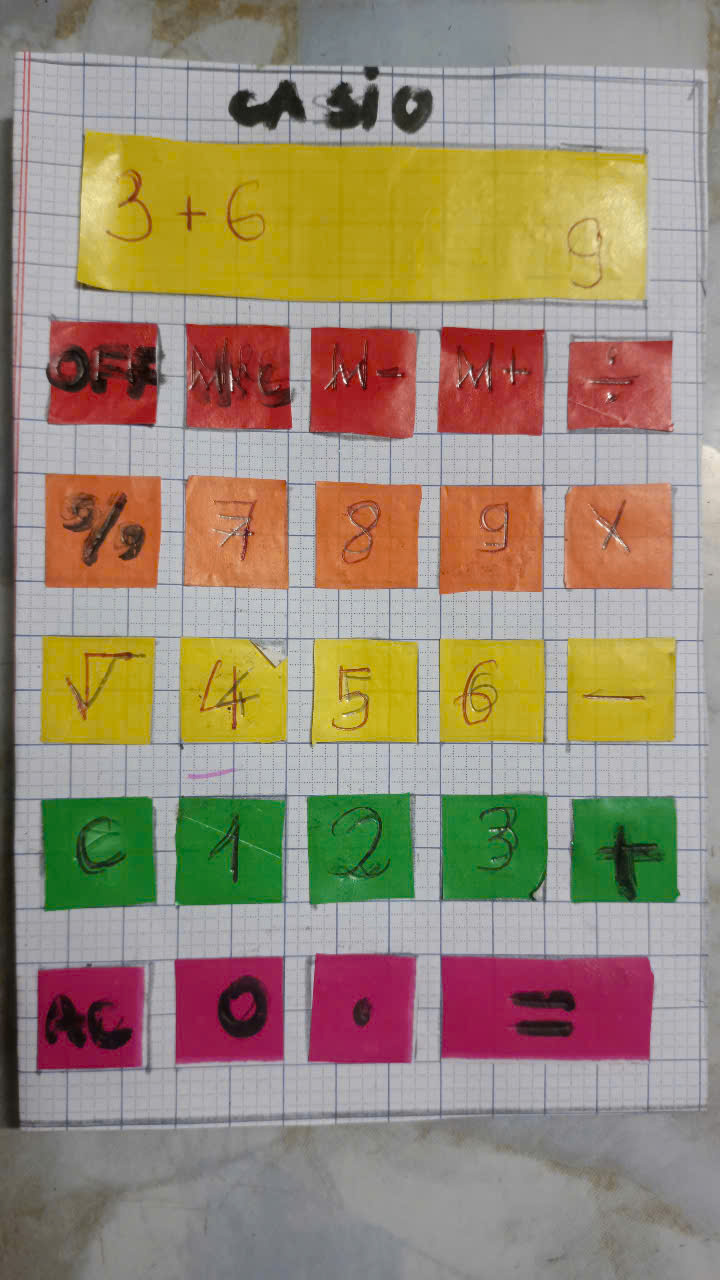 CASIO
3+6
9
OFF MRC M- M+ ÷
% 7 8 9 ×
√ 4 5 6 −
C 1 2 3 +
AC 0 . =